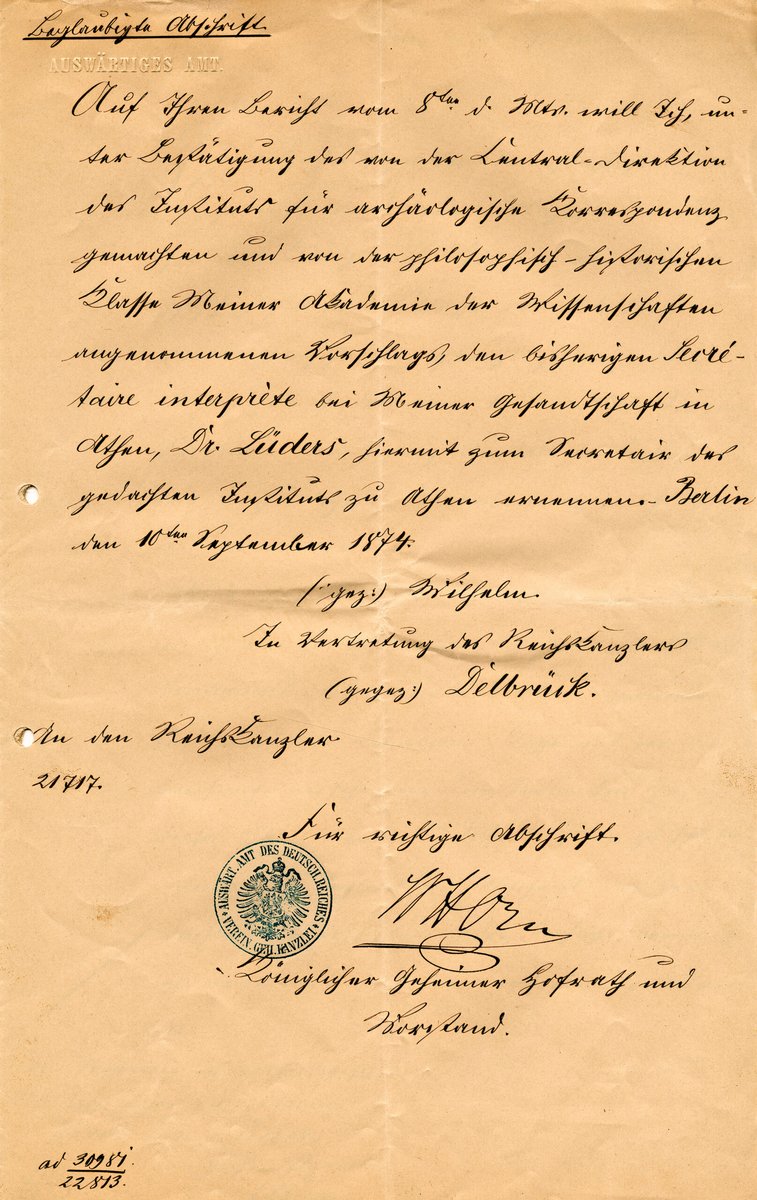 Beglaubigte Abschrift
AUSWÄRTIGES AMT.
Auf Ihren Bericht vom 8ten d. Mts. will Ich, un-
ter Bestätigung des von der Central-Direktion
des Instituts für archäologische Korrespondenz
gemachten und von der philosophisch-historischen
Klasse Meiner Akademie der Wissenschaften
angenommenen Vorschlags, den bisherigen Secré-
taire interprète bei Meiner Gesandtschaft in
Athen, Dr. Lüders, hiermit zum Secretair des
gedachten Instituts zu Athen ernennen.- Berlin
den 10ten September 1874.
(:gez:) Wilhelm.
In Vertretung des Reichskanzlers
(gegez:) Delbrück.
An den Reichskanzler
21717.
Für richtige Abschrift.
AUSWÄRT. AMT DES DEUTSCH. REICHES
VEREIN. GEH. KANZLEI
Königlicher Geheimer Hofrath und
Vorstand.
ad 30981.
22813.